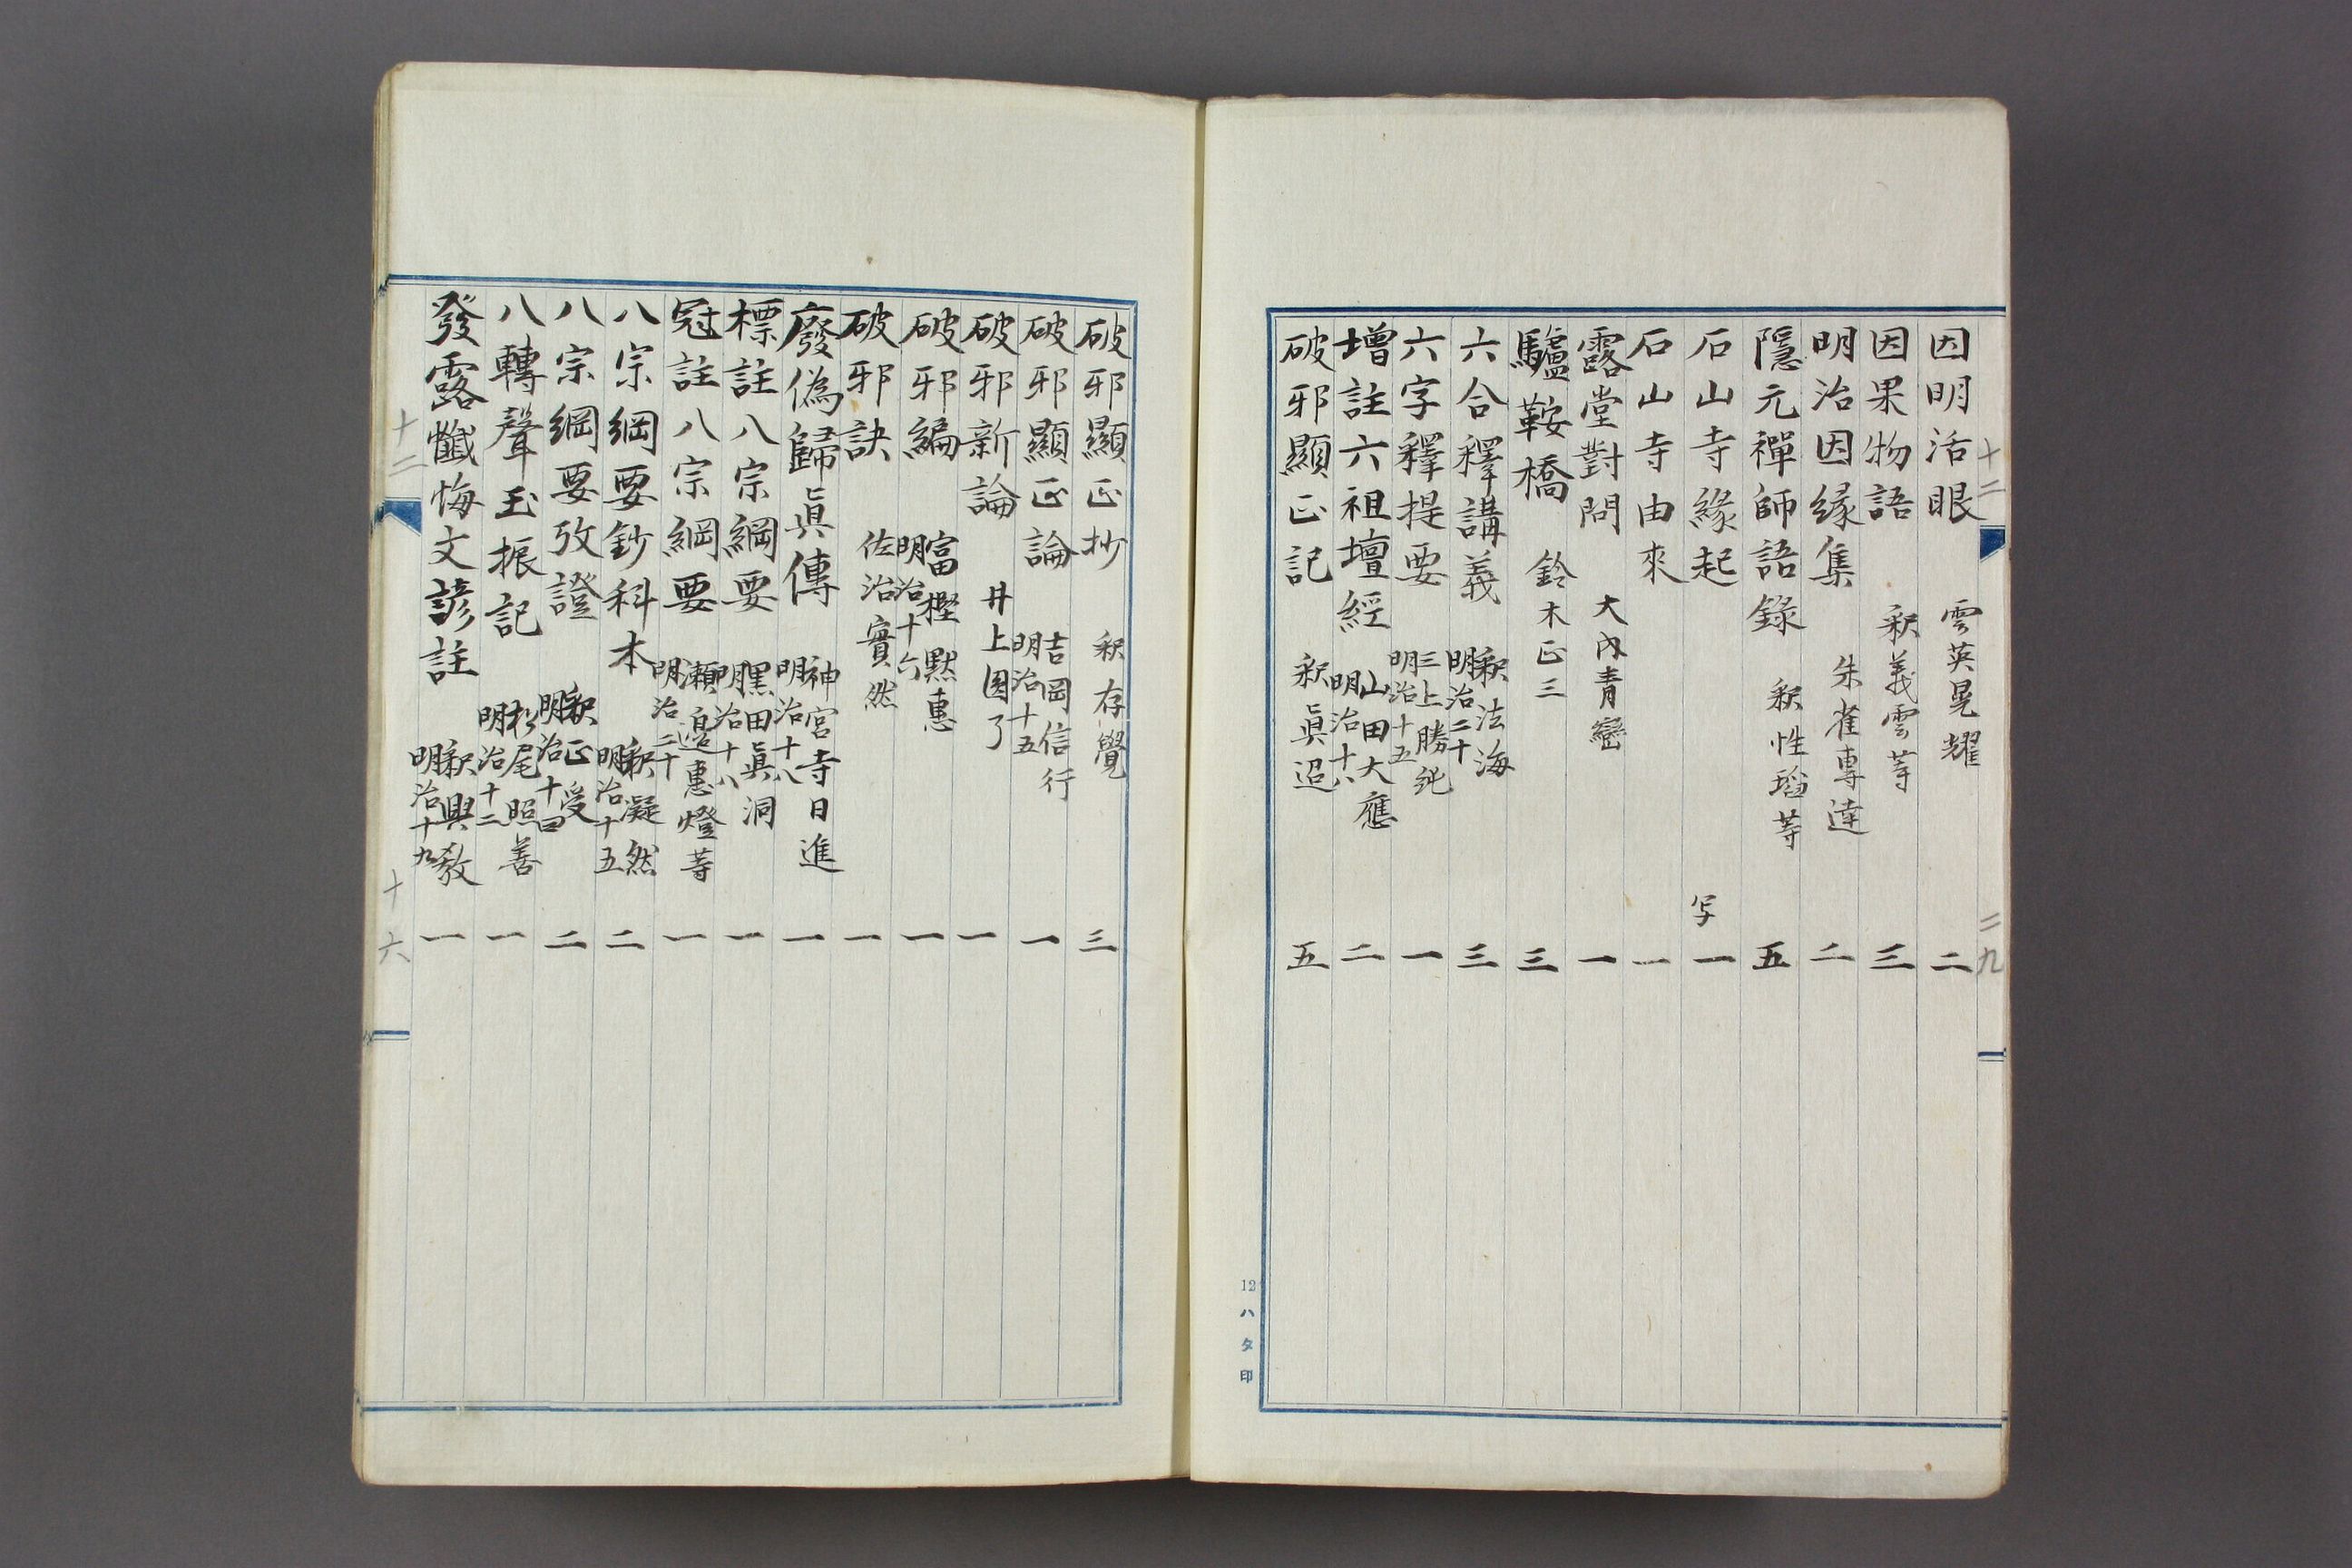 十二
二九
因明活眼 雲英晃耀 二
因果物語 釈義雲等 三
明治因縁集 朱雀專達 二
隱元禪師語錄 釈性瑫等 五
石山寺緣起 写 一
石山寺由來 一
露堂對問 大内青巒 一
驢鞍橋 鈴木正三 三
六合釋講義 釈法海 明治二十 三
六字釋提要 三上勝純 明治十五 一
增註六祖壇經 山田大應 明治十八 二
破邪顯正記 釈眞迢 五
12 ハタ印
破邪顯正抄 釈存覺 三
破邪顯正論 吉岡信行 明治十五 一
破邪新論 井上圓了 一
破邪編 富樫默惠 明治十六 一
破邪訣 佐治實然 一
廢偽歸眞傳 神宮寺日進 明治十八 一
標註八宗綱要 黑田眞洞 明治十八 一
冠註八宗綱要 瀬邉惠燈等 明治二十 一
八宗綱要鈔科本 釈凝然 明治十五 二
八宗綱要攷證 釈正受 明治十四 二
八轉聲玉振記 松尾照善 明治十二 一
發露懺悔文諺註 釈興教 明治十九 一
十二
十六